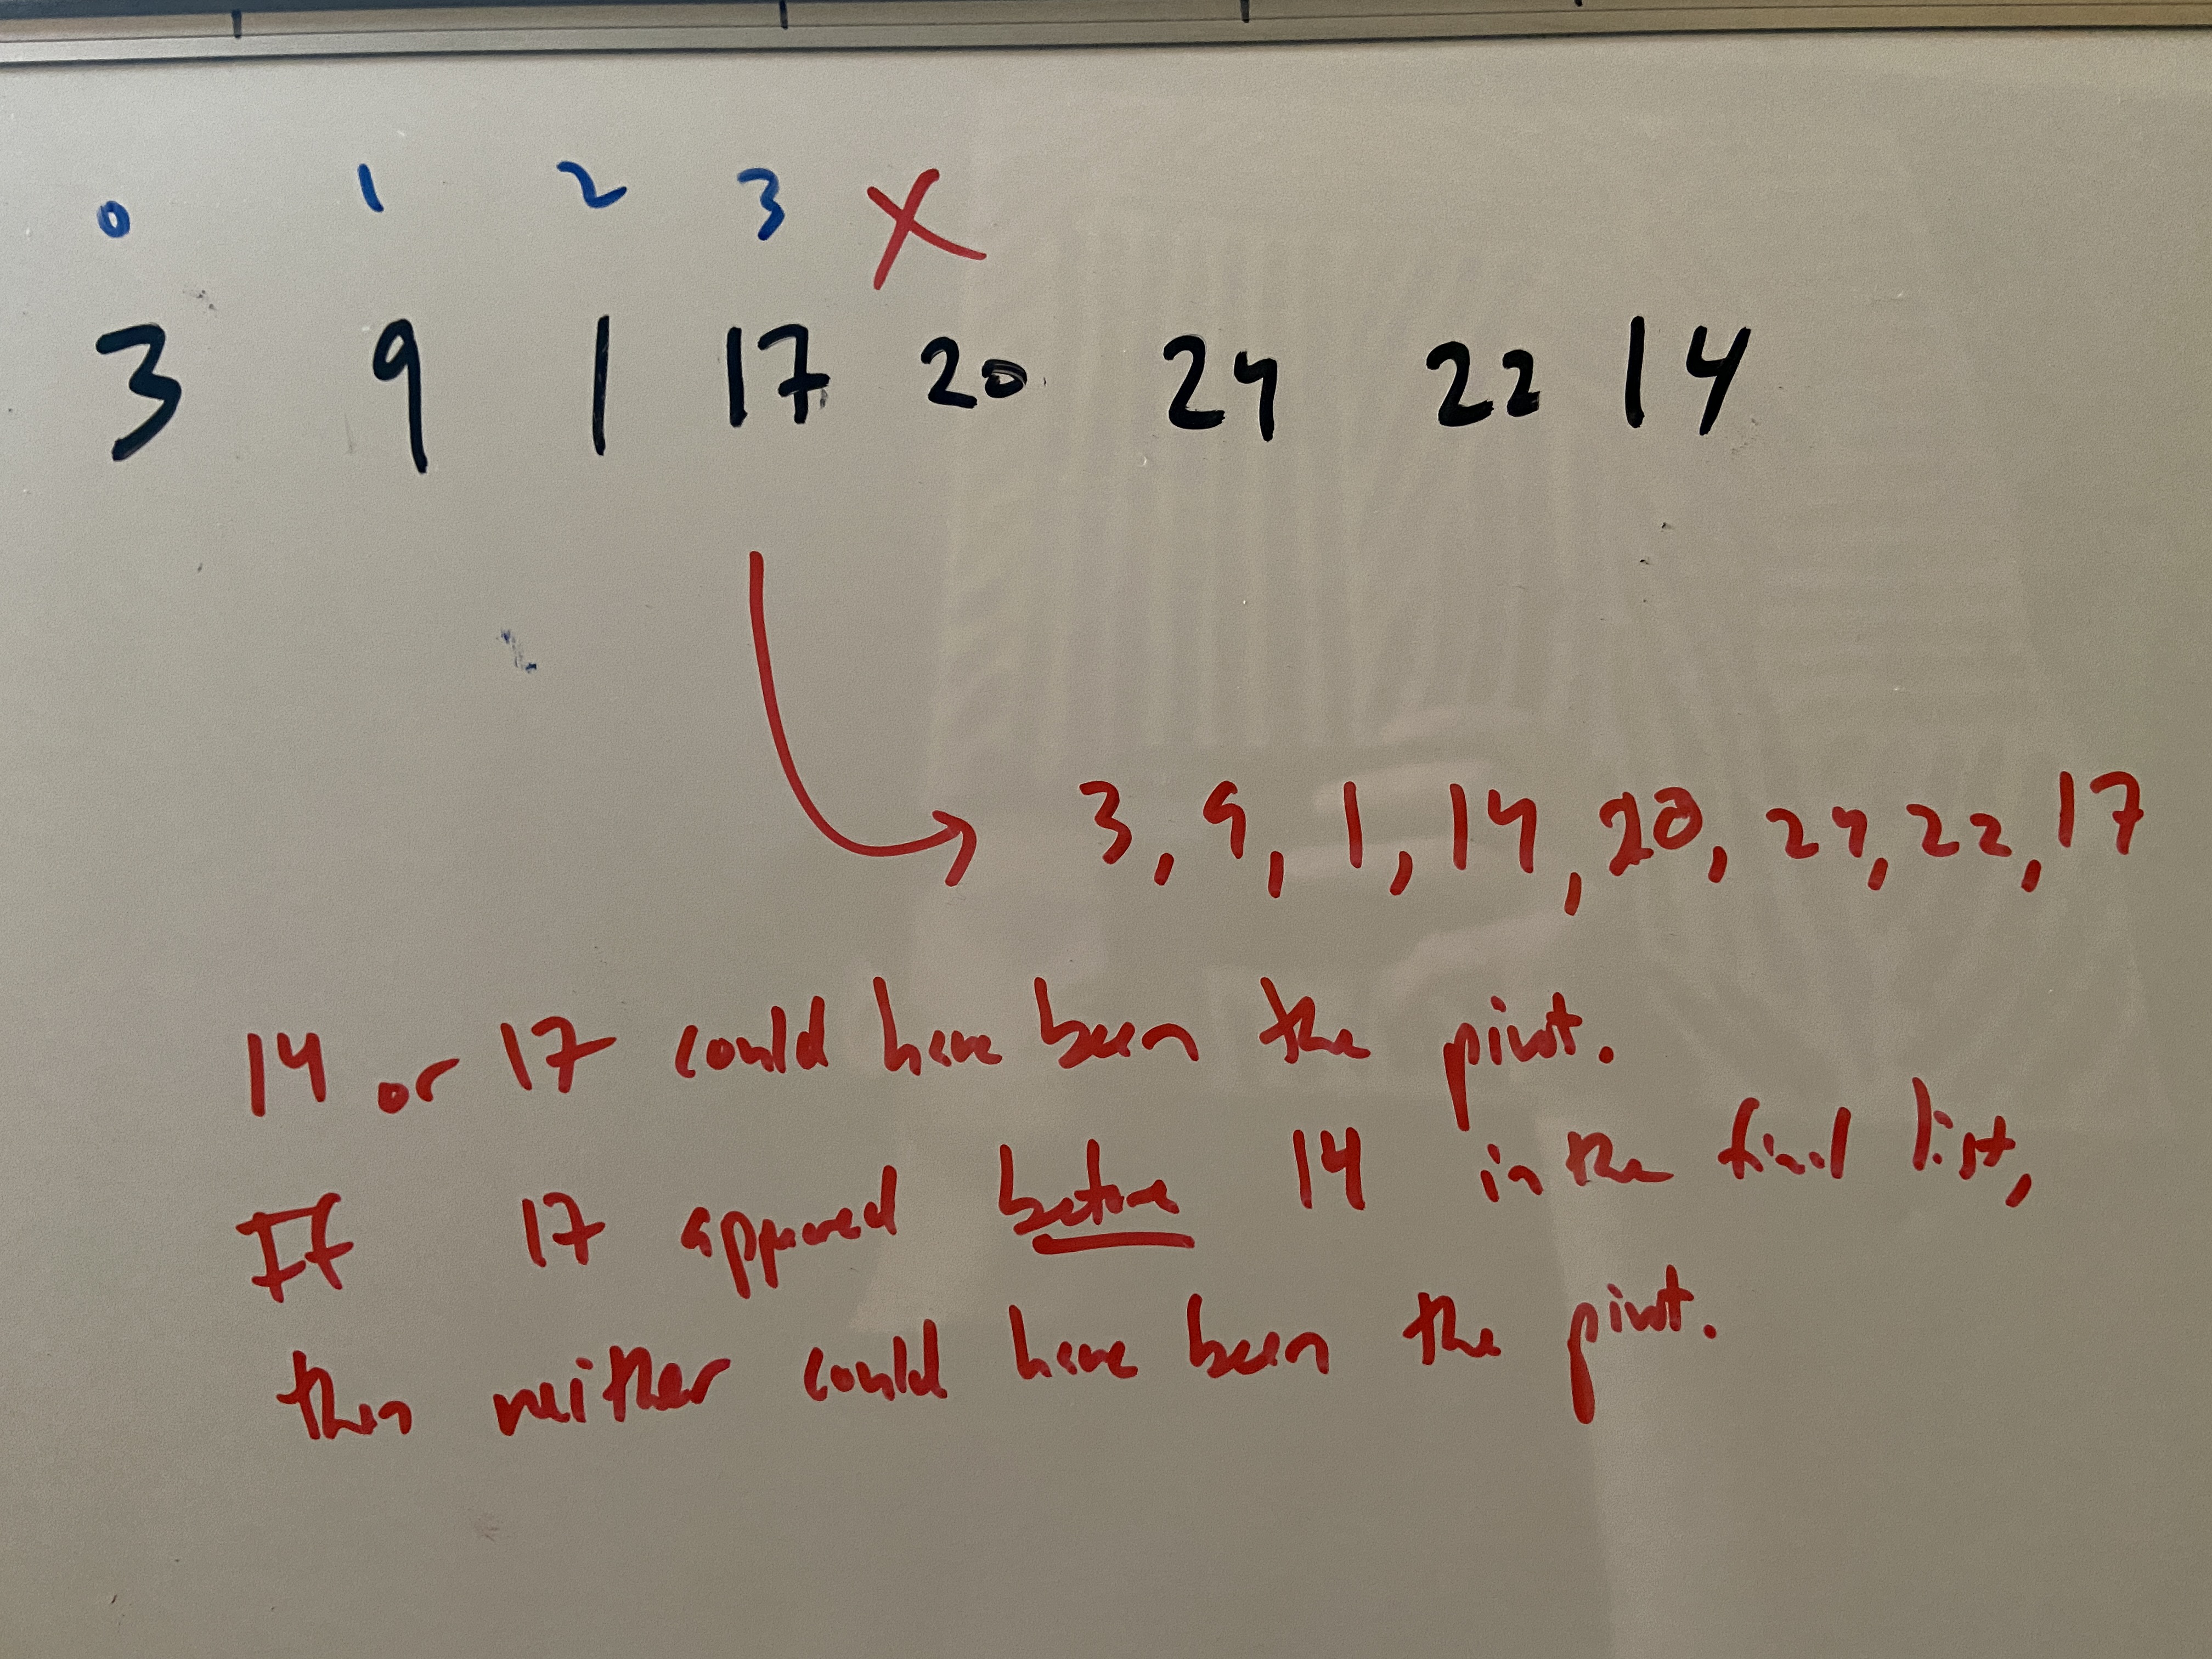 0 1 2 3 X
3 9 1 17 20 24 22 14
3, 9, 1, 14, 20, 24, 22, 17
14 or 17 could have been the pivot.
If 17 appeared before 14 in the final list,
then neither could have been the pivot.